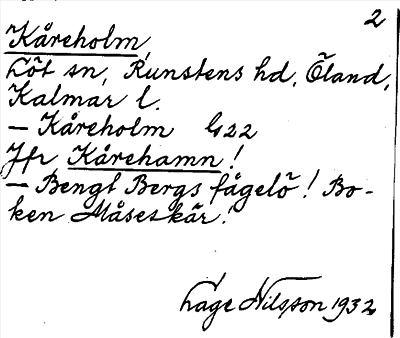 2
Kåreholm,
Löt sn, Runstens hd, Öland,
Kalmar l.
— Kåreholm G22
Jfr Kårehamn!
— Bengt Bergs fågelö! Bo-
ken Måseskär!
Lage Nilsson 1932